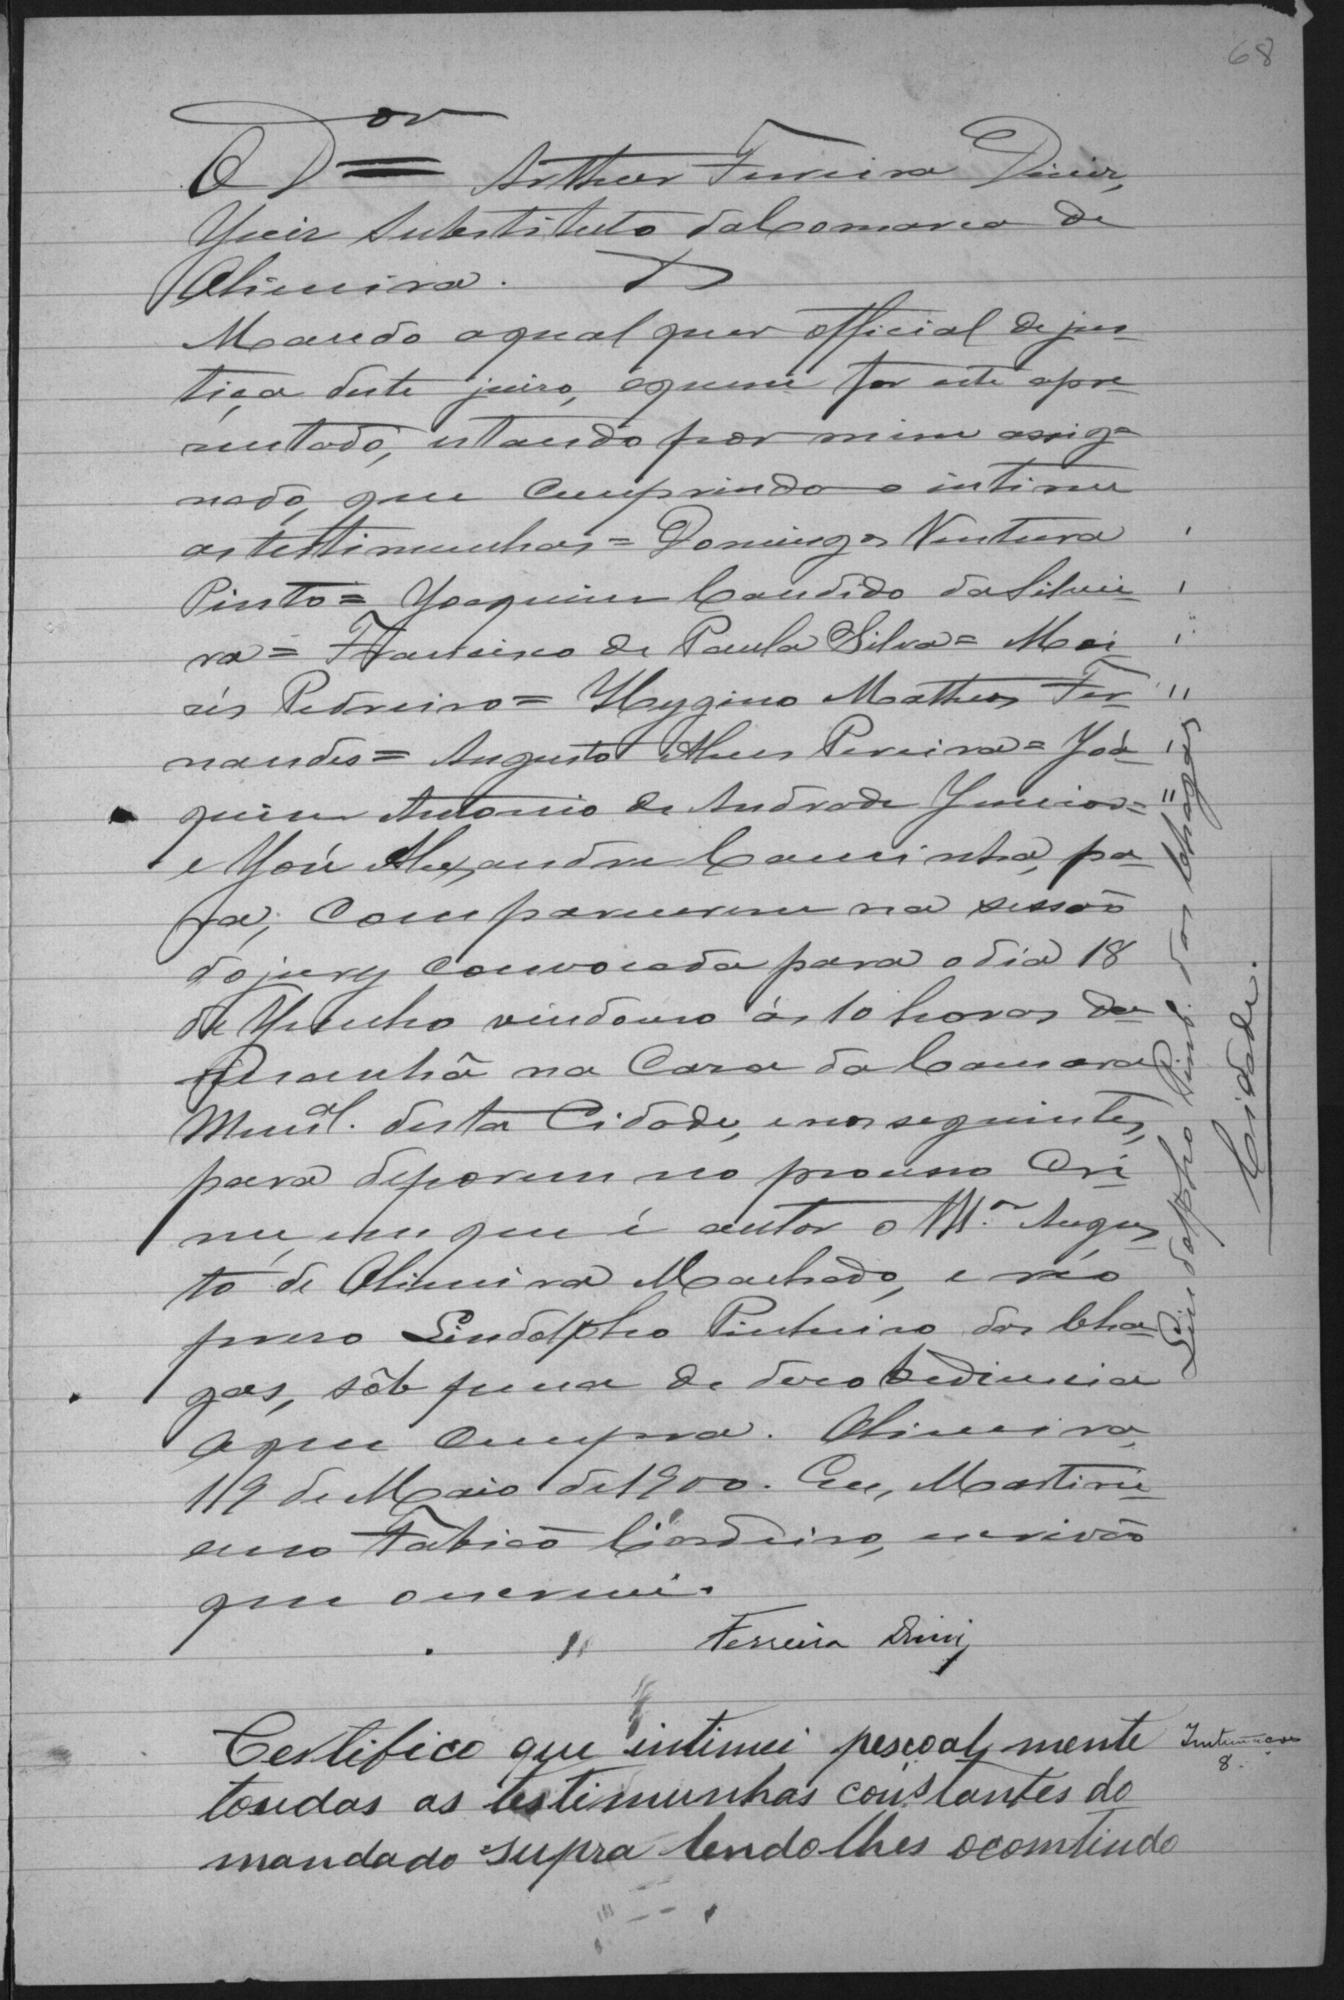 68
O D.or Arthur Ferreira Diniz,
Juiz Substituto da Comarca de
Oliveira.
Mando a qual quer official de jus-
tiça deste juizo, a quem for este apre-
sentado, estando por mim assig-
nado, que cumprindo o intime
as testimunhas = Domingos Ventura
Pinto = Joaquim Candido da Silvei-
ra = Francisco de Paula Silva = Moi-
zés Pedreiro = Hygino Matheus Fer-
nandes = Augusto Alves Pereira = Joa-
quim Antonio de Andrade Junior =
e José Alexandre Caminha, pa-
ra, comparecerem na sessão
do jury convocada para o dia 18
de Junho vindouro ás 10 horas da
manhã na Casa da Camara
Munal. desta Cidade, e nos seguintes,
para deporem no processo cri-
me, em que é autor o Mr. Augus-
to de Oliveira Machado, e réo
preso Lindolpho Pinheiro das Cha-
gas, sôb pena de desobediencia
O que cumpra. Oliveira,
19 de Maio de 1900. Eu, Martini-
ano Fabião Cordeiro, escrivão
que o escrevi.
Ferreira Diniz
Certifico que intimei pescoal, mente
toudas as testimunhas constantes do
mandado supra lendo lhes o comtiudo
Intimações
8.
Lindolpho Pinh. das Chagas
Cidade.